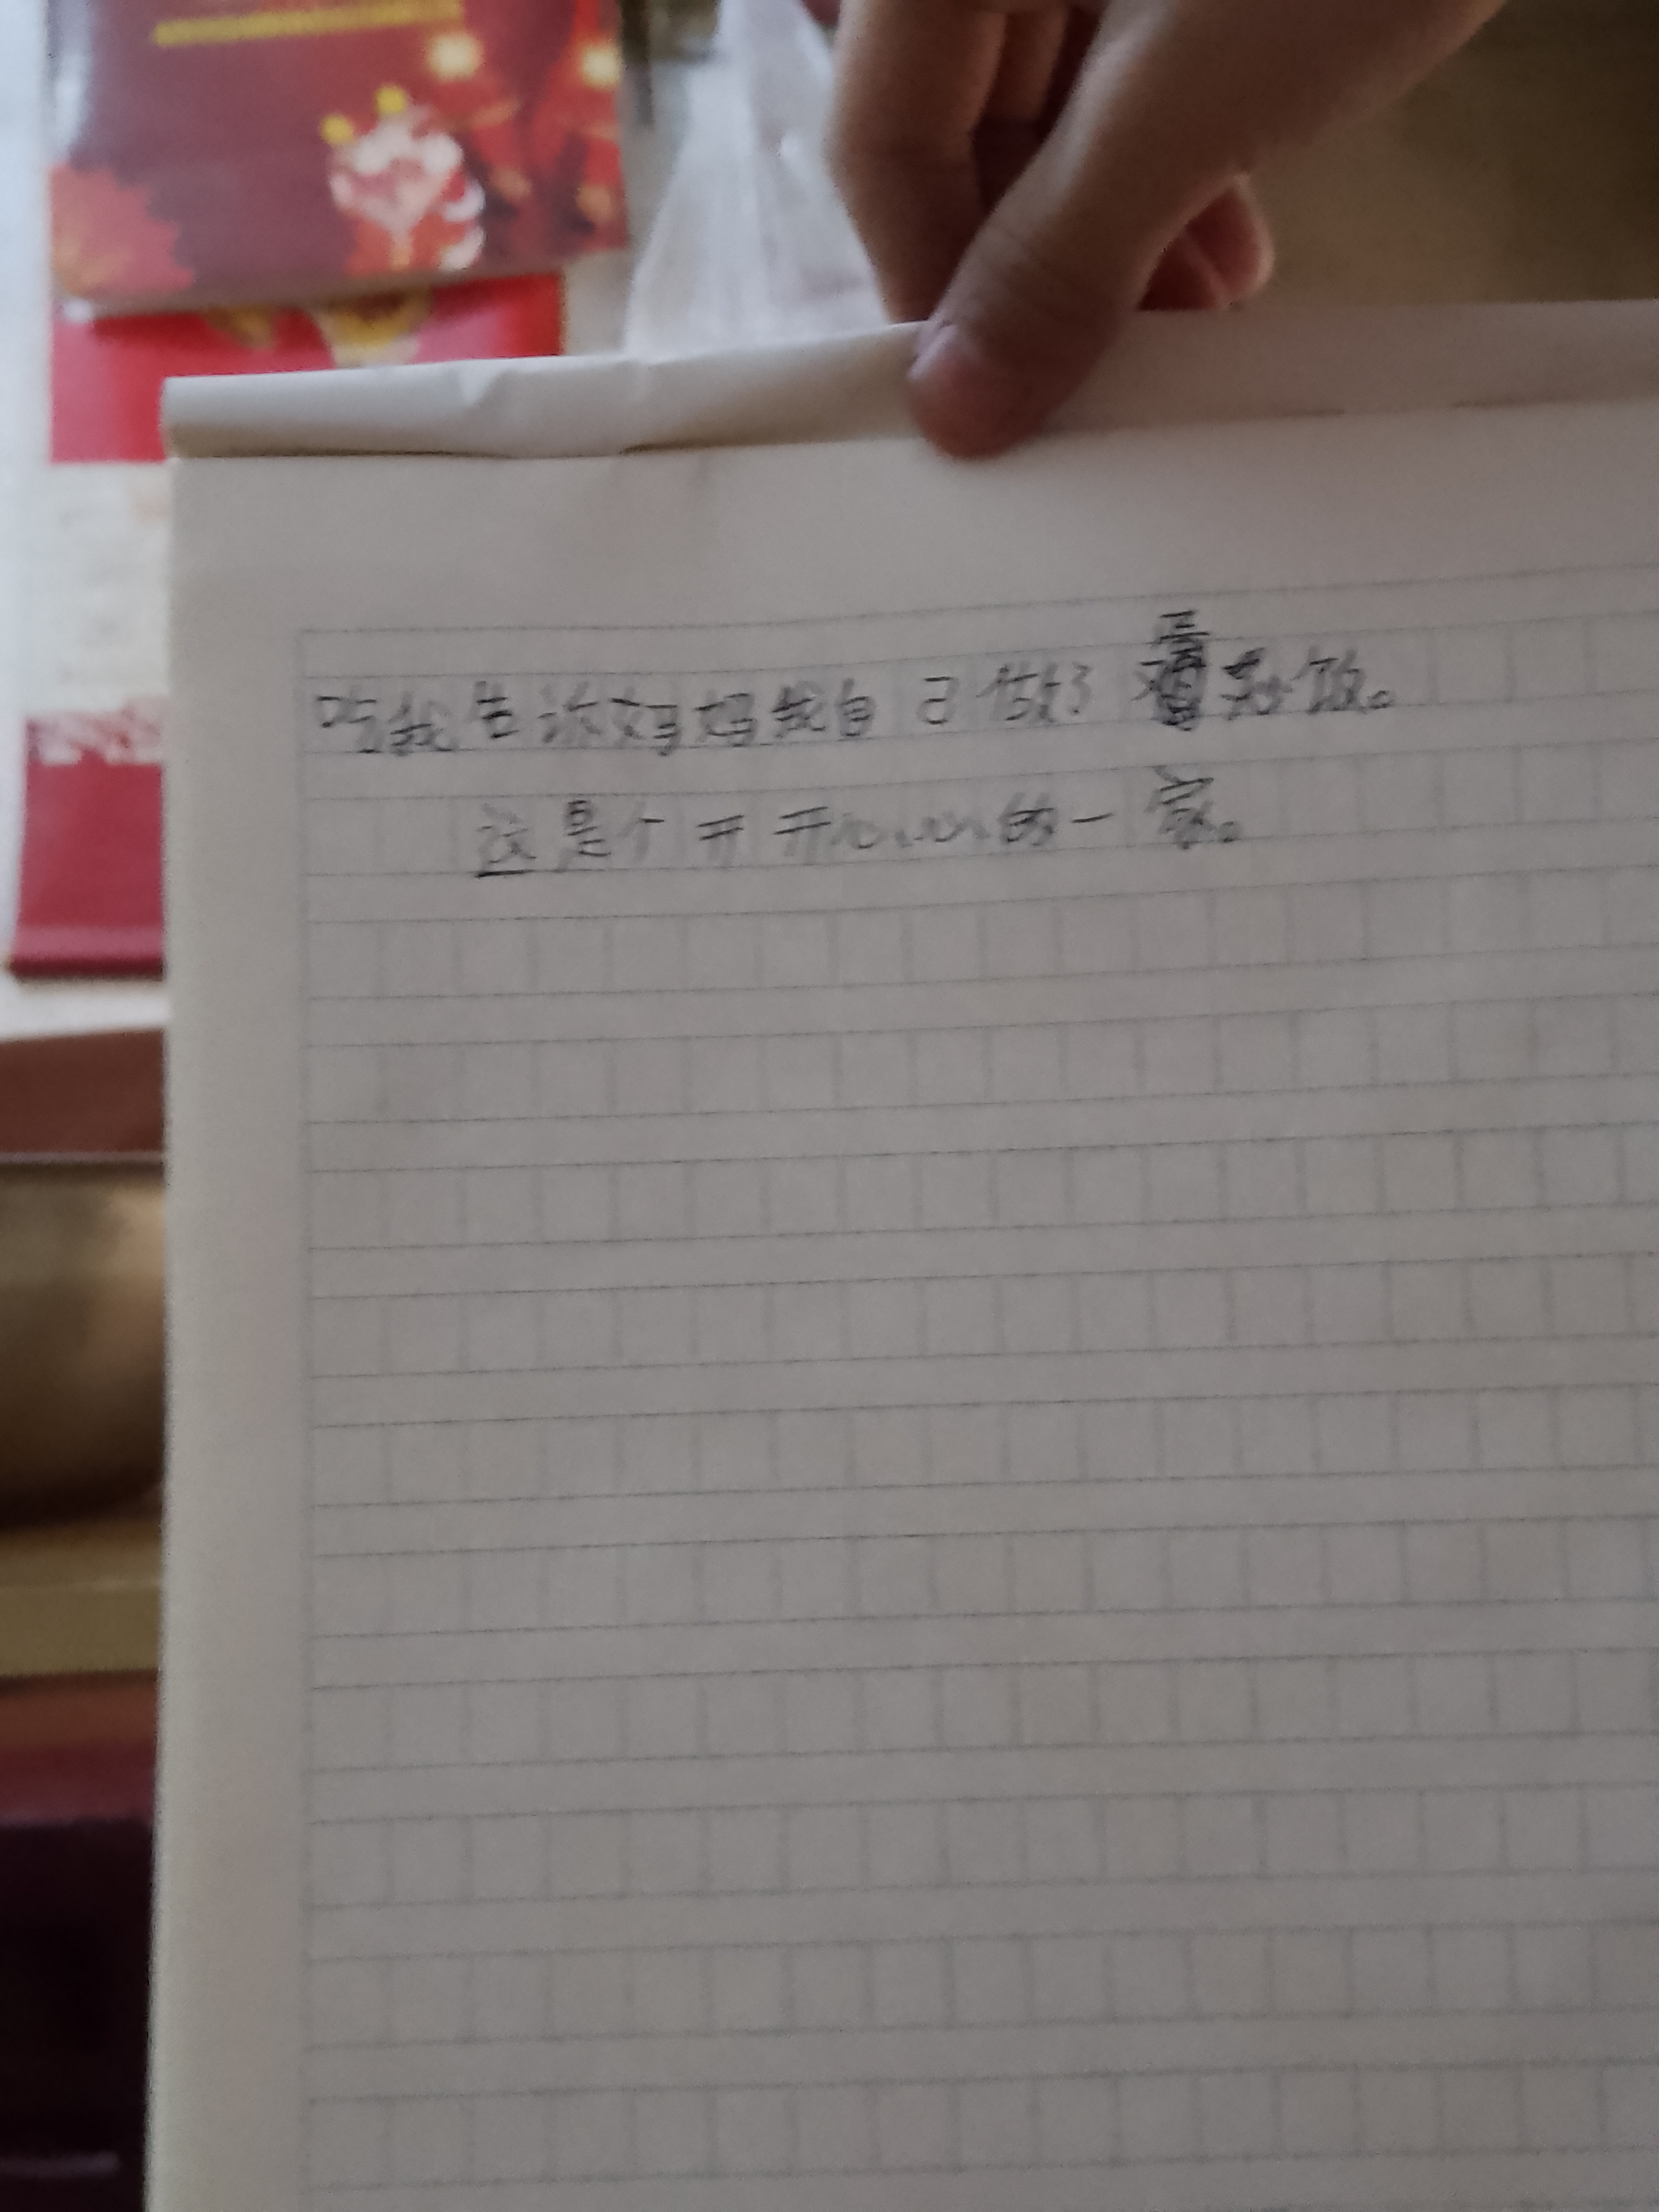 吃我告诉妈妈我自己做了蛋炒饭。
这是个开开心心的一家。